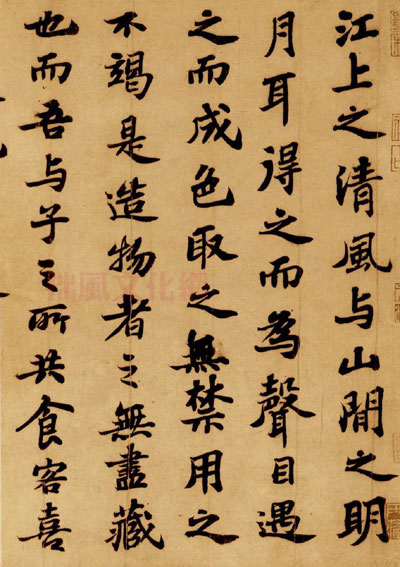 江上之清風与山閒之明
月耳得之而為聲目遇
之而成色取之無禁用之
不竭是造物者之無盡藏
也而吾与子之所共食客喜
拙風文化網